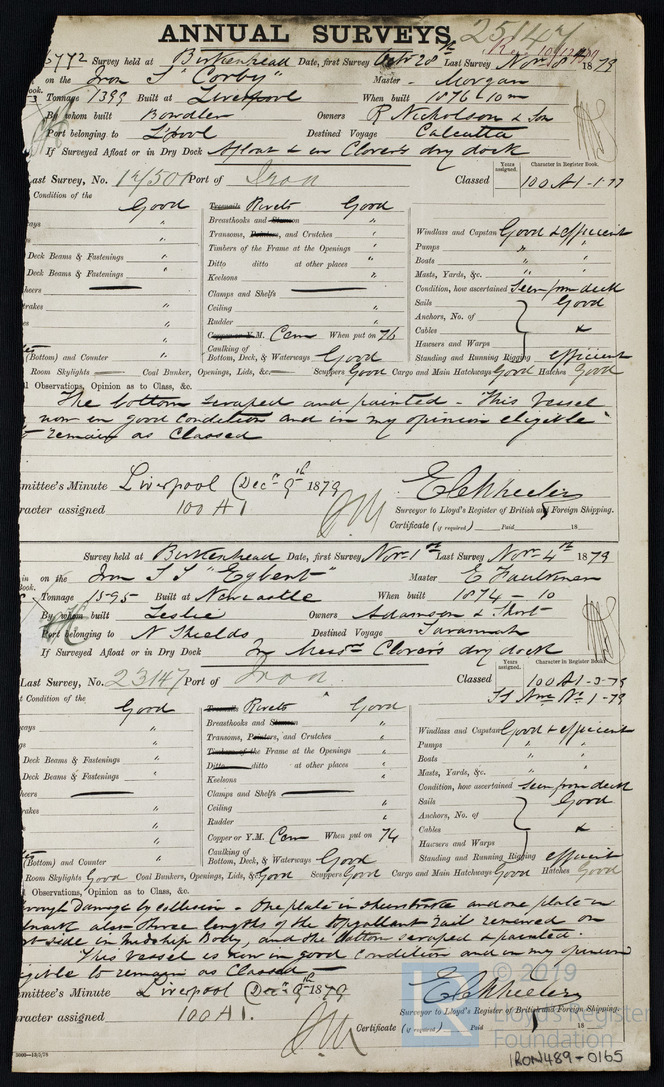 ANNUAL SURVEYS. 25147
6772 Survey held at Birkenhead Date, first Survey Octr 28th Last Survey Novr 8th 1879
on the Iron S "Corby" Master Morgan
Tonnage 1399 Built at Liverpool When built 1876-10m
By whom built Bowdler Owners R Nicholson & Son
Port belonging to L'pool Destined Voyage Calcutta
If Surveyed Afloat or in Dry Dock Afloat & in Clover's dry dock
Years assigned. Character in Register Book.
ast Survey, No. Port of Iron Classed 100 A1-1-77
Condition of the Good Treenails Rivets Good
Breasthooks and Stemson "
ays " Transoms, Pointers, and Crutches "
Windlass and Capstan Good & efficient
Timbers of the Frame at the Openings "
Pumps " "
Deck Beams & Fastenings " Ditto ditto at other places "
Boats " "
Deck Beams & Fastenings " Keelsons "
Masts, Yards, &c. " "
heers Clamps and Shelfs
Condition, how ascertained Seen from deck
rakes " Ceiling "
Sails Good
Rudder "
Anchors, No. of
Copper or Y.M. Cem When put on 76
Cables &
Caulking of
Hawsers and Warps
(Bottom) and Counter " Bottom, Deck, & Waterways Good
Standing and Running Rigging efficient
Room Skylights Coal Bunker, Openings, Lids, &c. Scuppers Good Cargo and Main Hatchways Good Hatches Good
l Observations, Opinion as to Class, &c.
The bottom scraped and painted - This Vessel
now in good condition and in my opinion eligible
to remain as Classed
mittee's Minute Liverpool Decr 9th 1879
racter assigned 100 A1
E C Wheeler
Surveyor to Lloyd's Register of British and Foreign Shipping.
Certificate (if required) Paid 18
Survey held at Birkenhead Date, first Survey Novr 1st Last Survey Novr 4th 1879
on the Iron S S "Egbert" Master E Faulkner
Tonnage 1595 Built at Newcastle When built 1874-10
By whom built Leslie Owners Adamson & Short
Port belonging to N Shields Destined Voyage Savannah
If Surveyed Afloat or in Dry Dock In Messrs Clover's dry dock
Years assigned. Character in Register Book
Last Survey, No. 23147 Port of Iron Classed 100 A1-3-79
1-79
t Condition of the Good Treenails Rivets Good
Breasthooks and Stemson "
ays " Transoms, Pointers, and Crutches "
Windlass and Capstan Good & efficient
gs " Timbers of the Frame at the Openings "
Pumps " "
Deck Beams & Fastenings " Ditto ditto at other places "
Boats " "
Deck Beams & Fastenings " Keelsons "
Masts, Yards, &c. " "
heers Clamps and Shelfs
Condition, how ascertained Seen from deck
rakes " Ceiling "
Sails Good
Rudder "
Anchors, No. of
Copper or Y.M. Cem When put on 74
Cables &
Caulking of
Hawsers and Warps
(Bottom) and Counter " Bottom, Deck, & Waterways Good
Standing and Running Rigging efficient
Room Skylights Good Coal Bunkers, Openings, Lids, &c. Good Scuppers Good Cargo and Main Hatchways Good Hatches Good
Observations, Opinion as to Class, &c.
rough Damage by collision - One plate in sheerstrake and one plate in
also three lengths of the topgallant rail renewed on
side in midship Body, and the bottom scraped & painted.
This vessel is now in good condition and in my opinion
igible to remain as Classed
mmittee's Minute Liverpool Decr 9th 1879
racter assigned 100 A1.
E C Wheeler
Surveyor to Lloyd's Register of British and Foreign Shipping.
Certificate (if required) Paid 18
3000—13/5/78
© 2019
Lloyd's Register
Foundation
LR
IRON489-0165